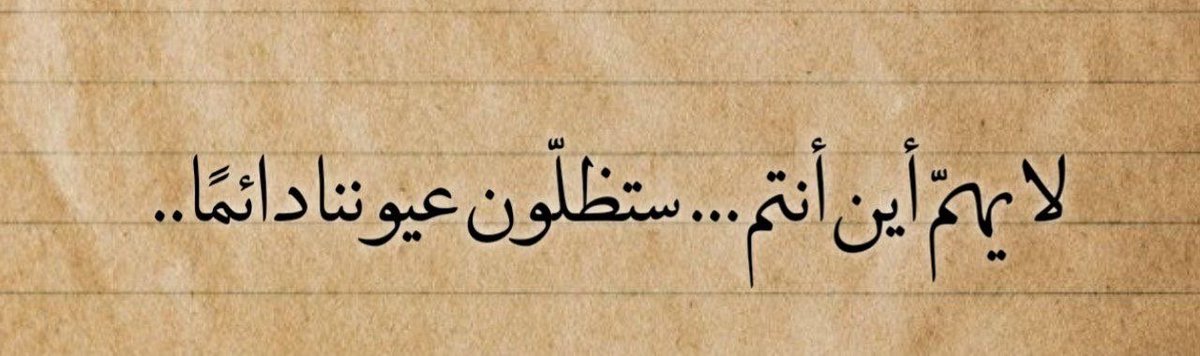 لا يهمّ أين أنتم... ستظلّون عيوننا دائمًا..